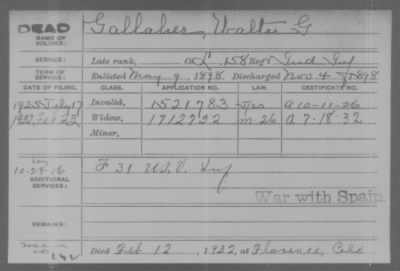 DEAD
NAME OF SOLDIER: Gallaher, Walter G
SERVICE: Late rank, Co L, 158 Reg't Ind Inf
TERM OF SERVICE: Enlisted May 9, 1898 Discharged Nov 4, 1898
DATE OF FILING. CLASS. APPLICATION NO. LAW. CERTIFICATE NO.
1925 July 17 Invalid, 1521783 a 10-11-26
1932 Feb 23 Widow, 1712732 M-26 a-7-18-32
Minor,
10-29-26
ADDITIONAL SERVICES: F 31 U.S.V. Inf
War with Spain
REMARKS:
Died Feb 12, 1932, at Florence, Colo